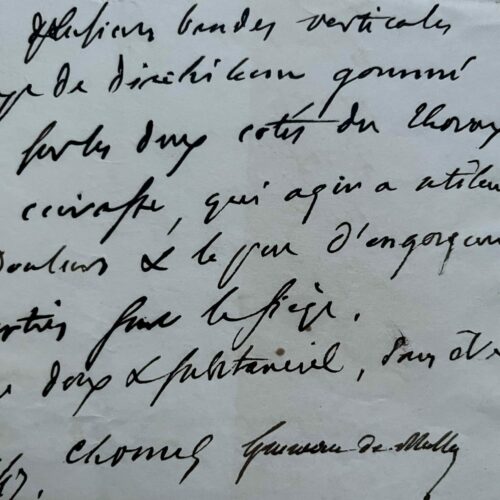 plusieurs bandes verticales
de diachilum gommé
sur les deux cotés du thorax
cuirasse, qui agira utilem
douleurs & le peu d'engorgem
le siège.
doux & substantiel, sans être
Chomel Gueneau de Mussy
47.